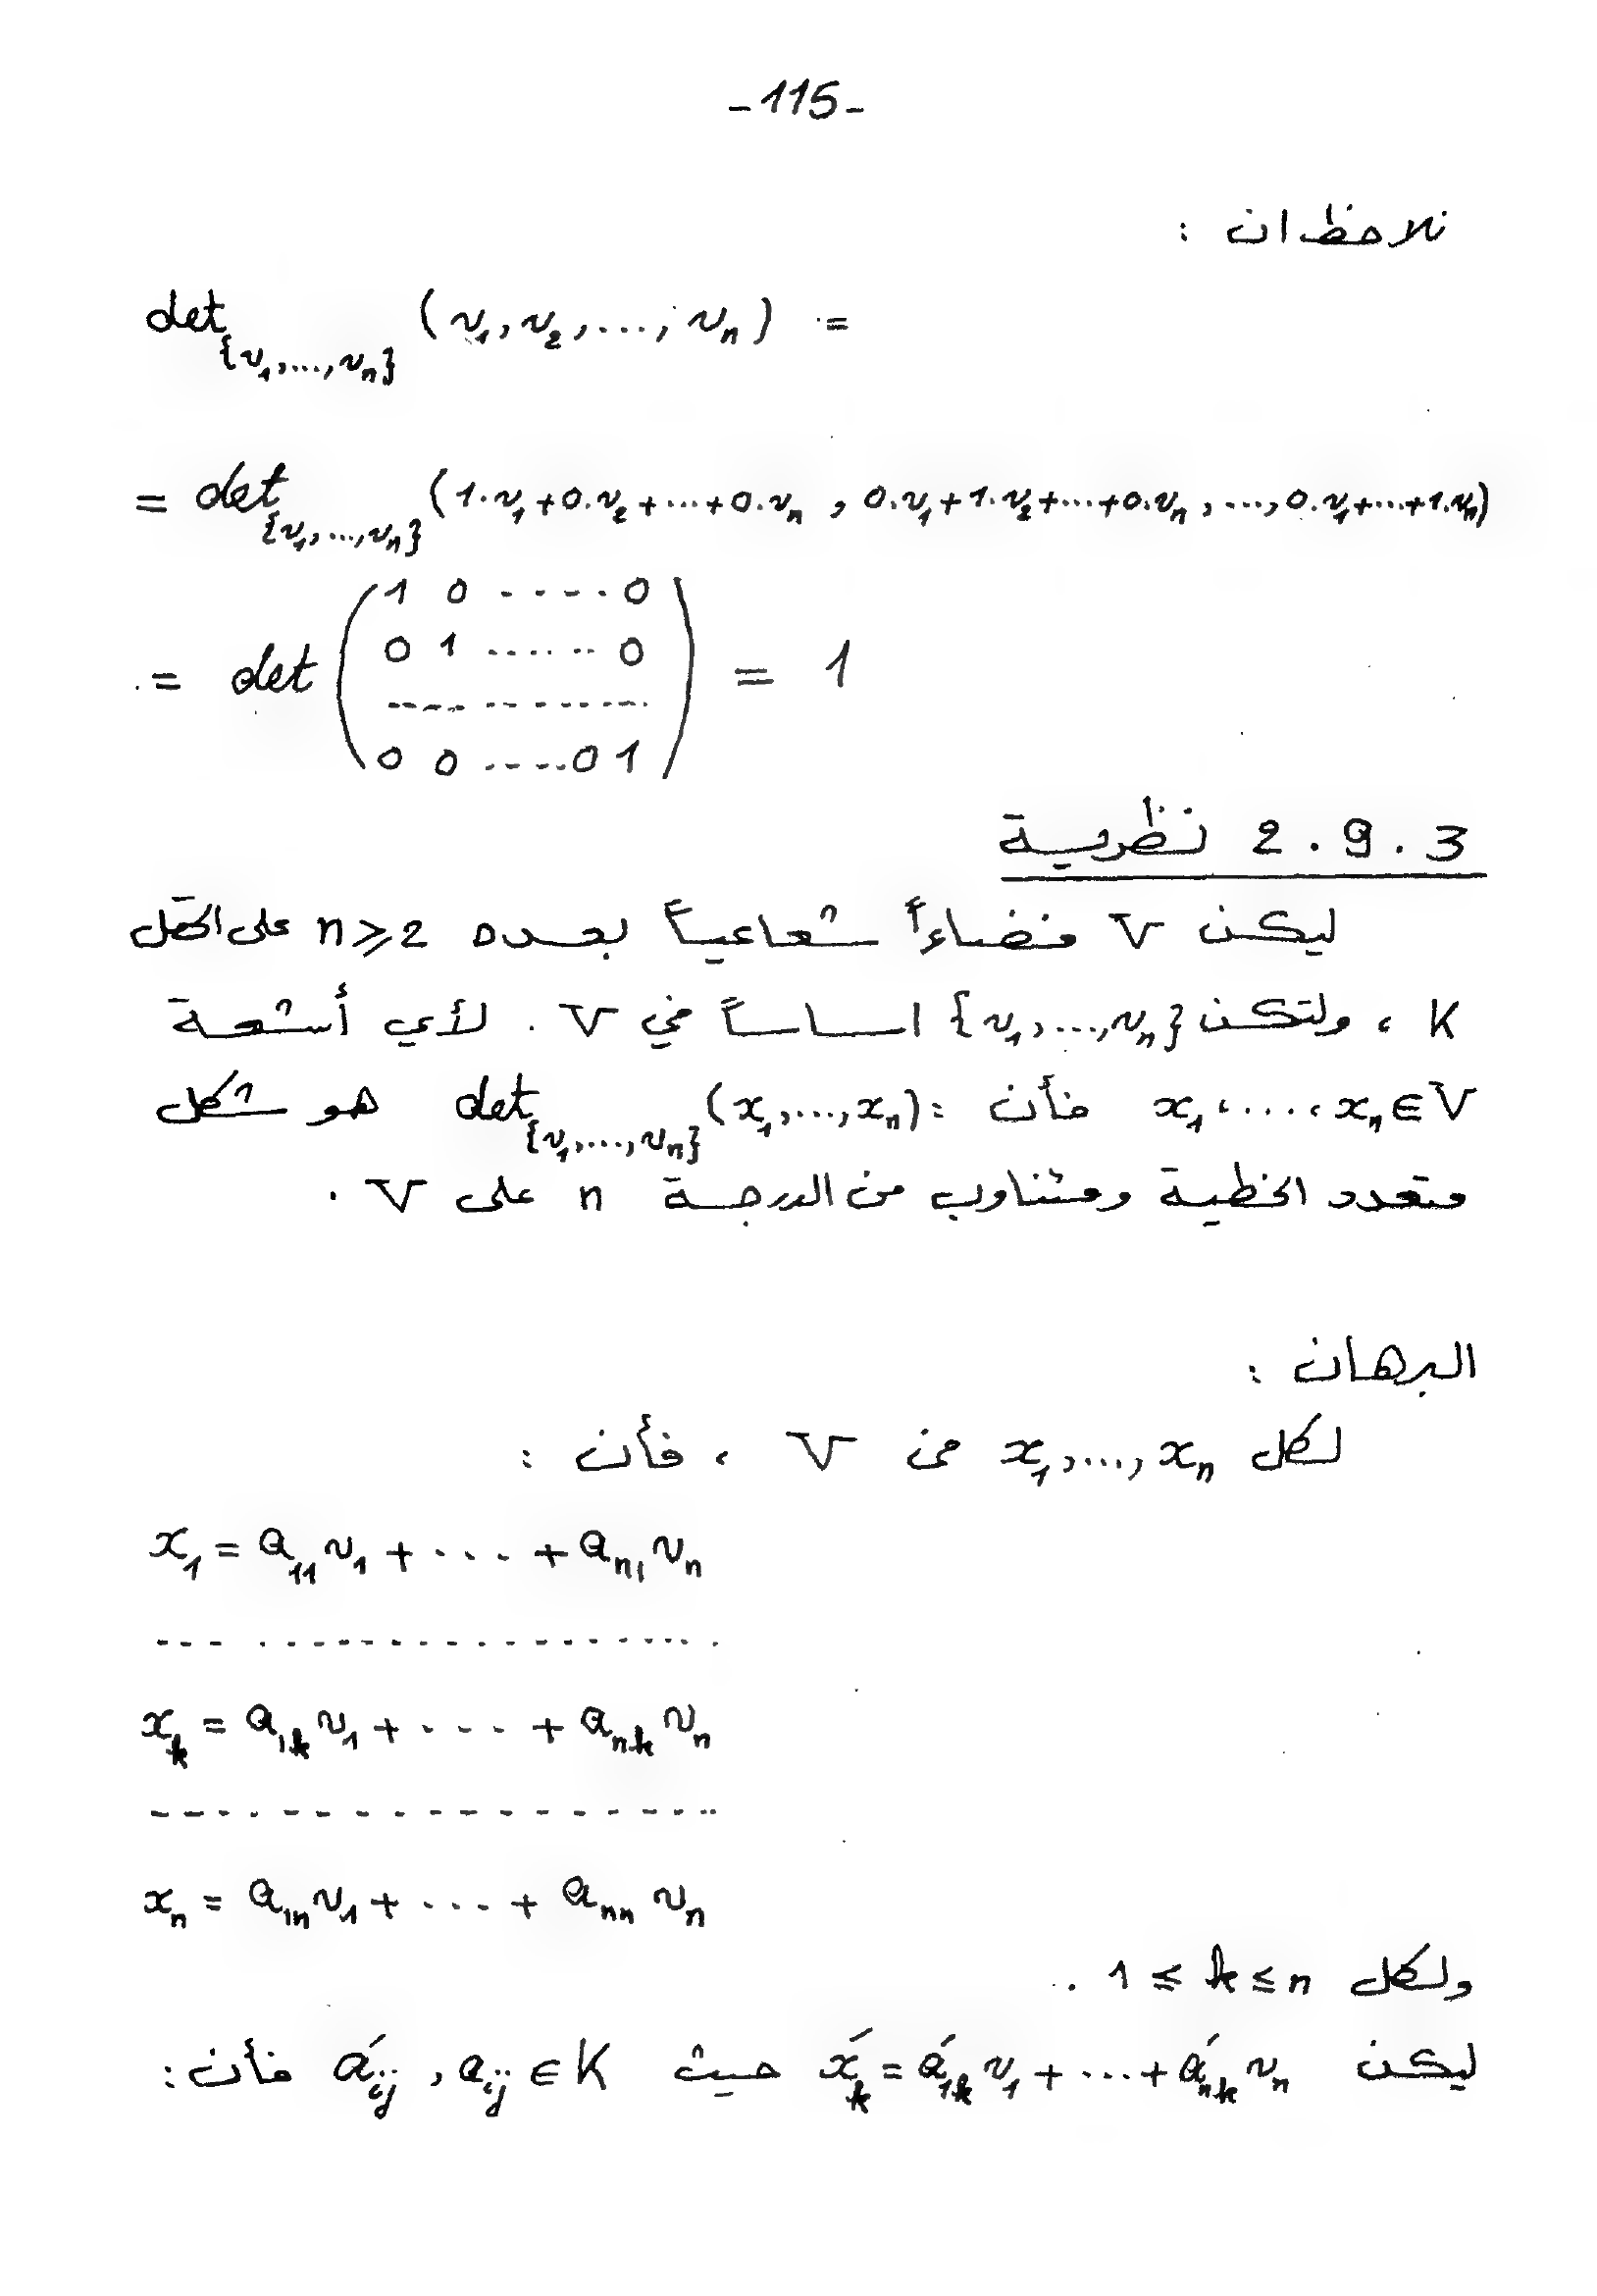 -115-
نلاحظ ان :
det_{v₁,...,vₙ} (v₁, v₂, ..., vₙ) =
= det_{v₁,...,vₙ} (1.v₁+0.v₂+...+0.vₙ , 0.v₁+1.v₂+...+0.vₙ, ..., 0.v₁+...+1.vₙ)
1 0 ----- 0
0 1 ...... 0
= det ( ------------ ) = 1
0 0 .....0 1
2.9.3 نظرية
ليكن V فضاءاً شعاعياً بعده n ⩾ 2 على الحقل
K ، ولتكن {v₁,...,vₙ} اساساً في V . لأي أشعة
x₁، ....، xₙ ∈ V فأن : det_{v₁,...,vₙ} (x₁,...,xₙ) هو شكل
متعدد الخطية ومتناوب من الدرجة n على V .
البرهان :
لكل x₁,...,xₙ من V ، فأن :
x₁ = a₁₁v₁ + ... + aₙ₁vₙ
--- ------------------
xₖ = a₁ₖv₁ + ... + aₙₖvₙ
---------------------
xₙ = a₁ₙv₁ + ... + aₙₙvₙ
ولكل 1 ≤ k ≤ n .
ليكن x́ₖ = á₁ₖv₁ + ... + áₙₖvₙ حيث áᵢⱼ , aᵢⱼ ∈ K فأن :